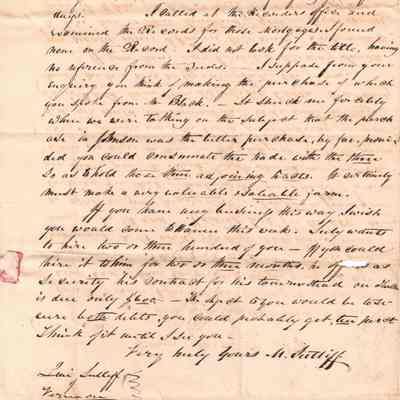 days. I called at the Recorders office and
examined the Records for those Mortgages. I found
none on the Record I did not look for the title, having
no reference from the I suppose from your
enquiry you think of making the purchase of which
you spoke from Mr Black. — It struck me forcibly
when we were talking on the subject that the purch
ase in Johnson was the better purchase, by far provi-
ded you could consummate the trade with the three
so as to hold those three adjoining tracts. It certainly
must make a very valuable & Salable farm.
If you have any business this way I wish
you would come to Warren this week. July wants
to hire two or three hundred of you — If you could
hire it to him for two or three months, he offers as
Security his contract for his town on which
is due only $600 — The Agst you would be to se-
cure both debts, you could probably get ten pr ct
Think of it until I see you —
Very truly Yours M. Sutliff
Levi Sutliff
Vernon